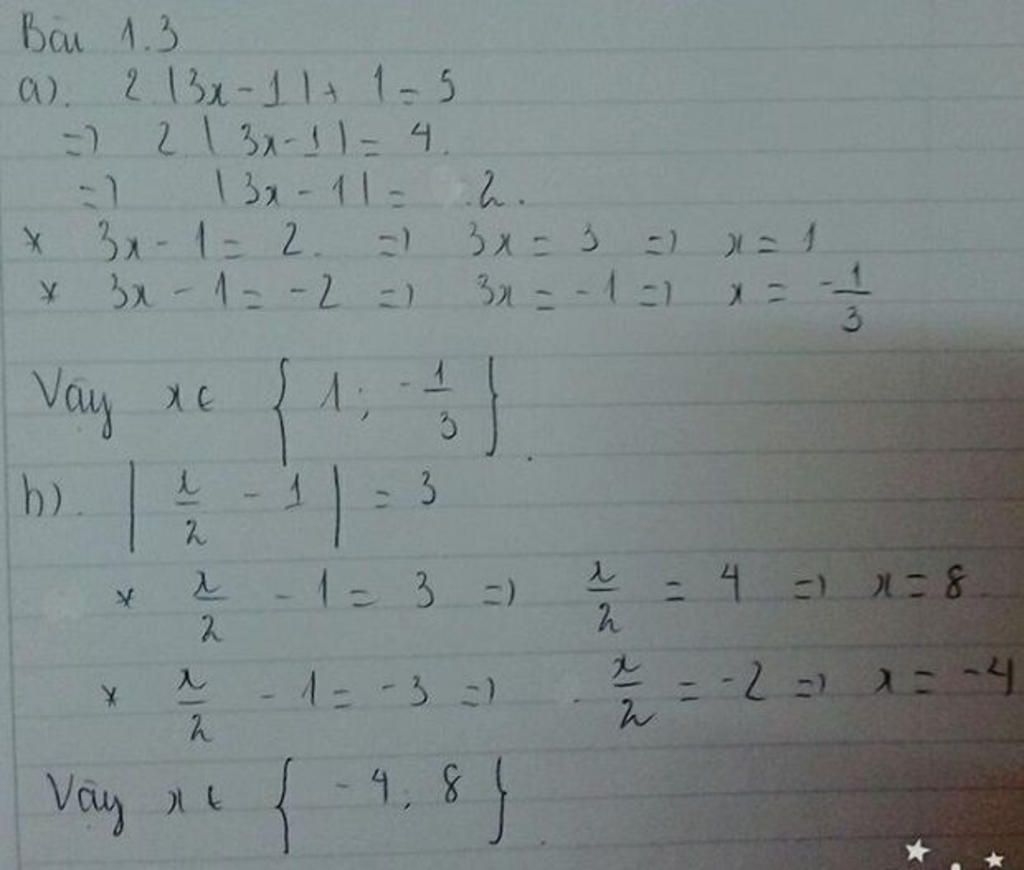 Bài 1.3
a). 2.|3x-1|+ 1 = 5
=) 2.|3x-1| = 4.
=) |3x-1| = 2.
* 3x-1 = 2. =) 3x = 3 =) x = 1
* 3x-1 = -2 =) 3x = -1 =) x = -1/3
Vậy x ∈ { 1; -1/3 }.
b). | x/2 - 1 | = 3
* x/2 - 1 = 3 =) x/2 = 4 =) x = 8.
* x/2 - 1 = -3 =) x/2 = -2 =) x = -4
Vậy x ∈ { -4; 8 }.